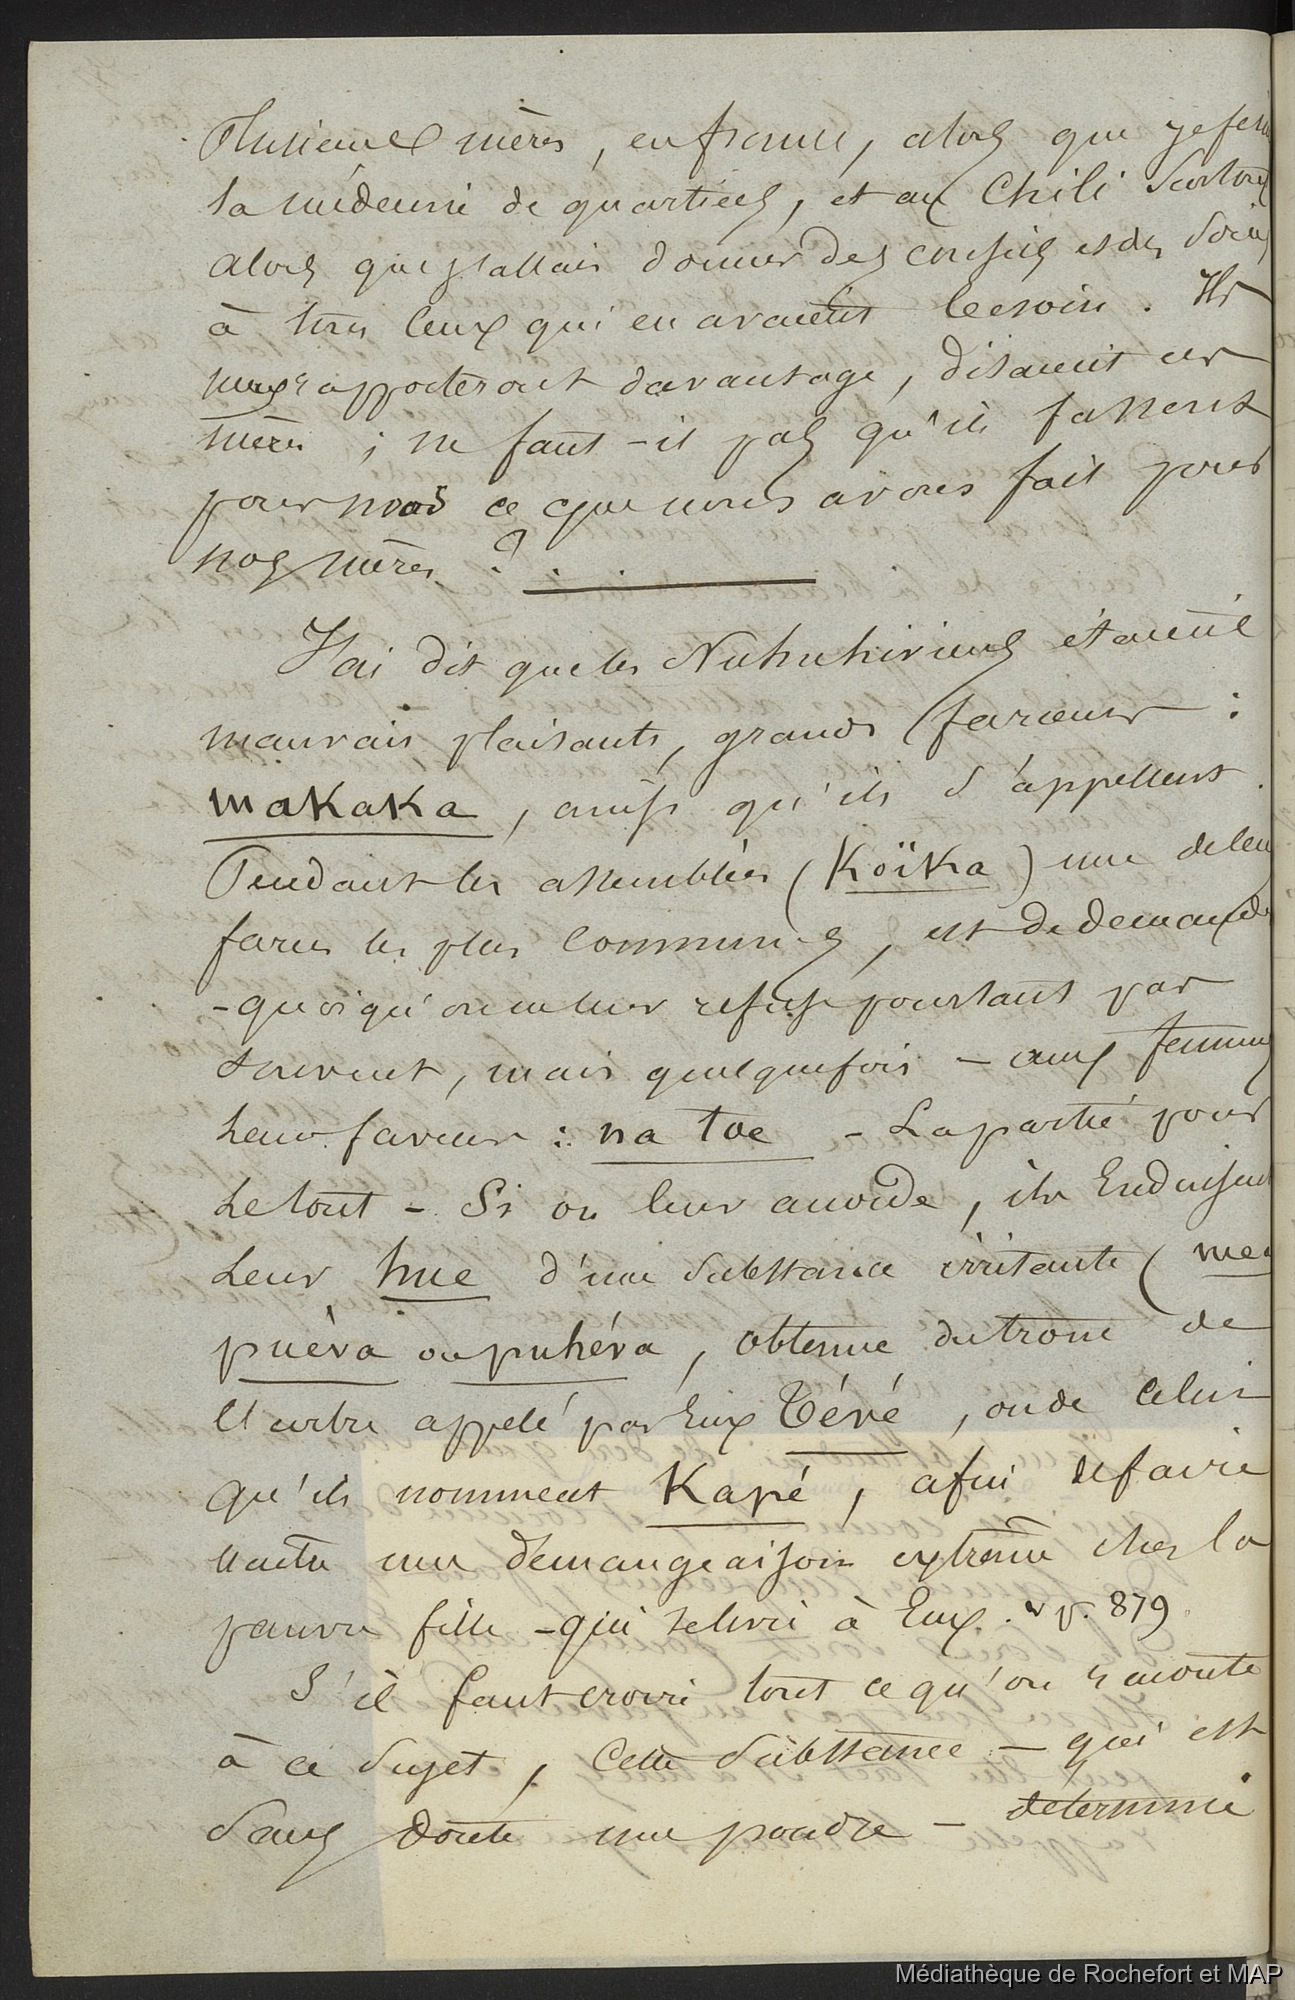 Plusieurs mères, en france, alors que je fesais
la médecine de quartiers, et au Chili surtout
alors que j'allais donner des conseils et des soins
à tous ceux qui en avaient besoin. Ils
nous rapporteront davantage, disaient ces
mères ; ne faut-il pas qu'ils fassent
pour nous ce que nous avons fait pour
nos mères ? . .
J'ai dit que les Nukuhiviens étaient
mauvais plaisants, grands farceurs :
makaka, ainsi qu'ils s'appellent.
Pendant les assemblées (Koïka) une de leurs
farces les plus communes, est de demander
- quoiqu'on ne leur refuse pourtant pas
souvent, mais quelquefois - aux femmes
leurs faveurs : na toe - La partie pour
Le tout - Si on leur accorde, ils Enduisent
Leur hue d'une substance irritante (mea
puèva ou puhéva, obtenue du tronc de
l'arbre appelé par Eux Tévé, ou de celui
qu'ils nomment Kapé, afin de faire
naître une démangeaison extrême chez la
pauvre fille - qui se livre à Eux. v p. 879
S'il faut croire tout ce qu'on raconte
à ce sujet, Cette substance - qui est
sans doute une poudre - détermine
Médiathèque de Rochefort et MAP